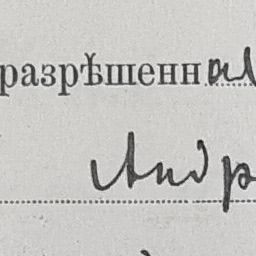 разрѣшенная
Андр